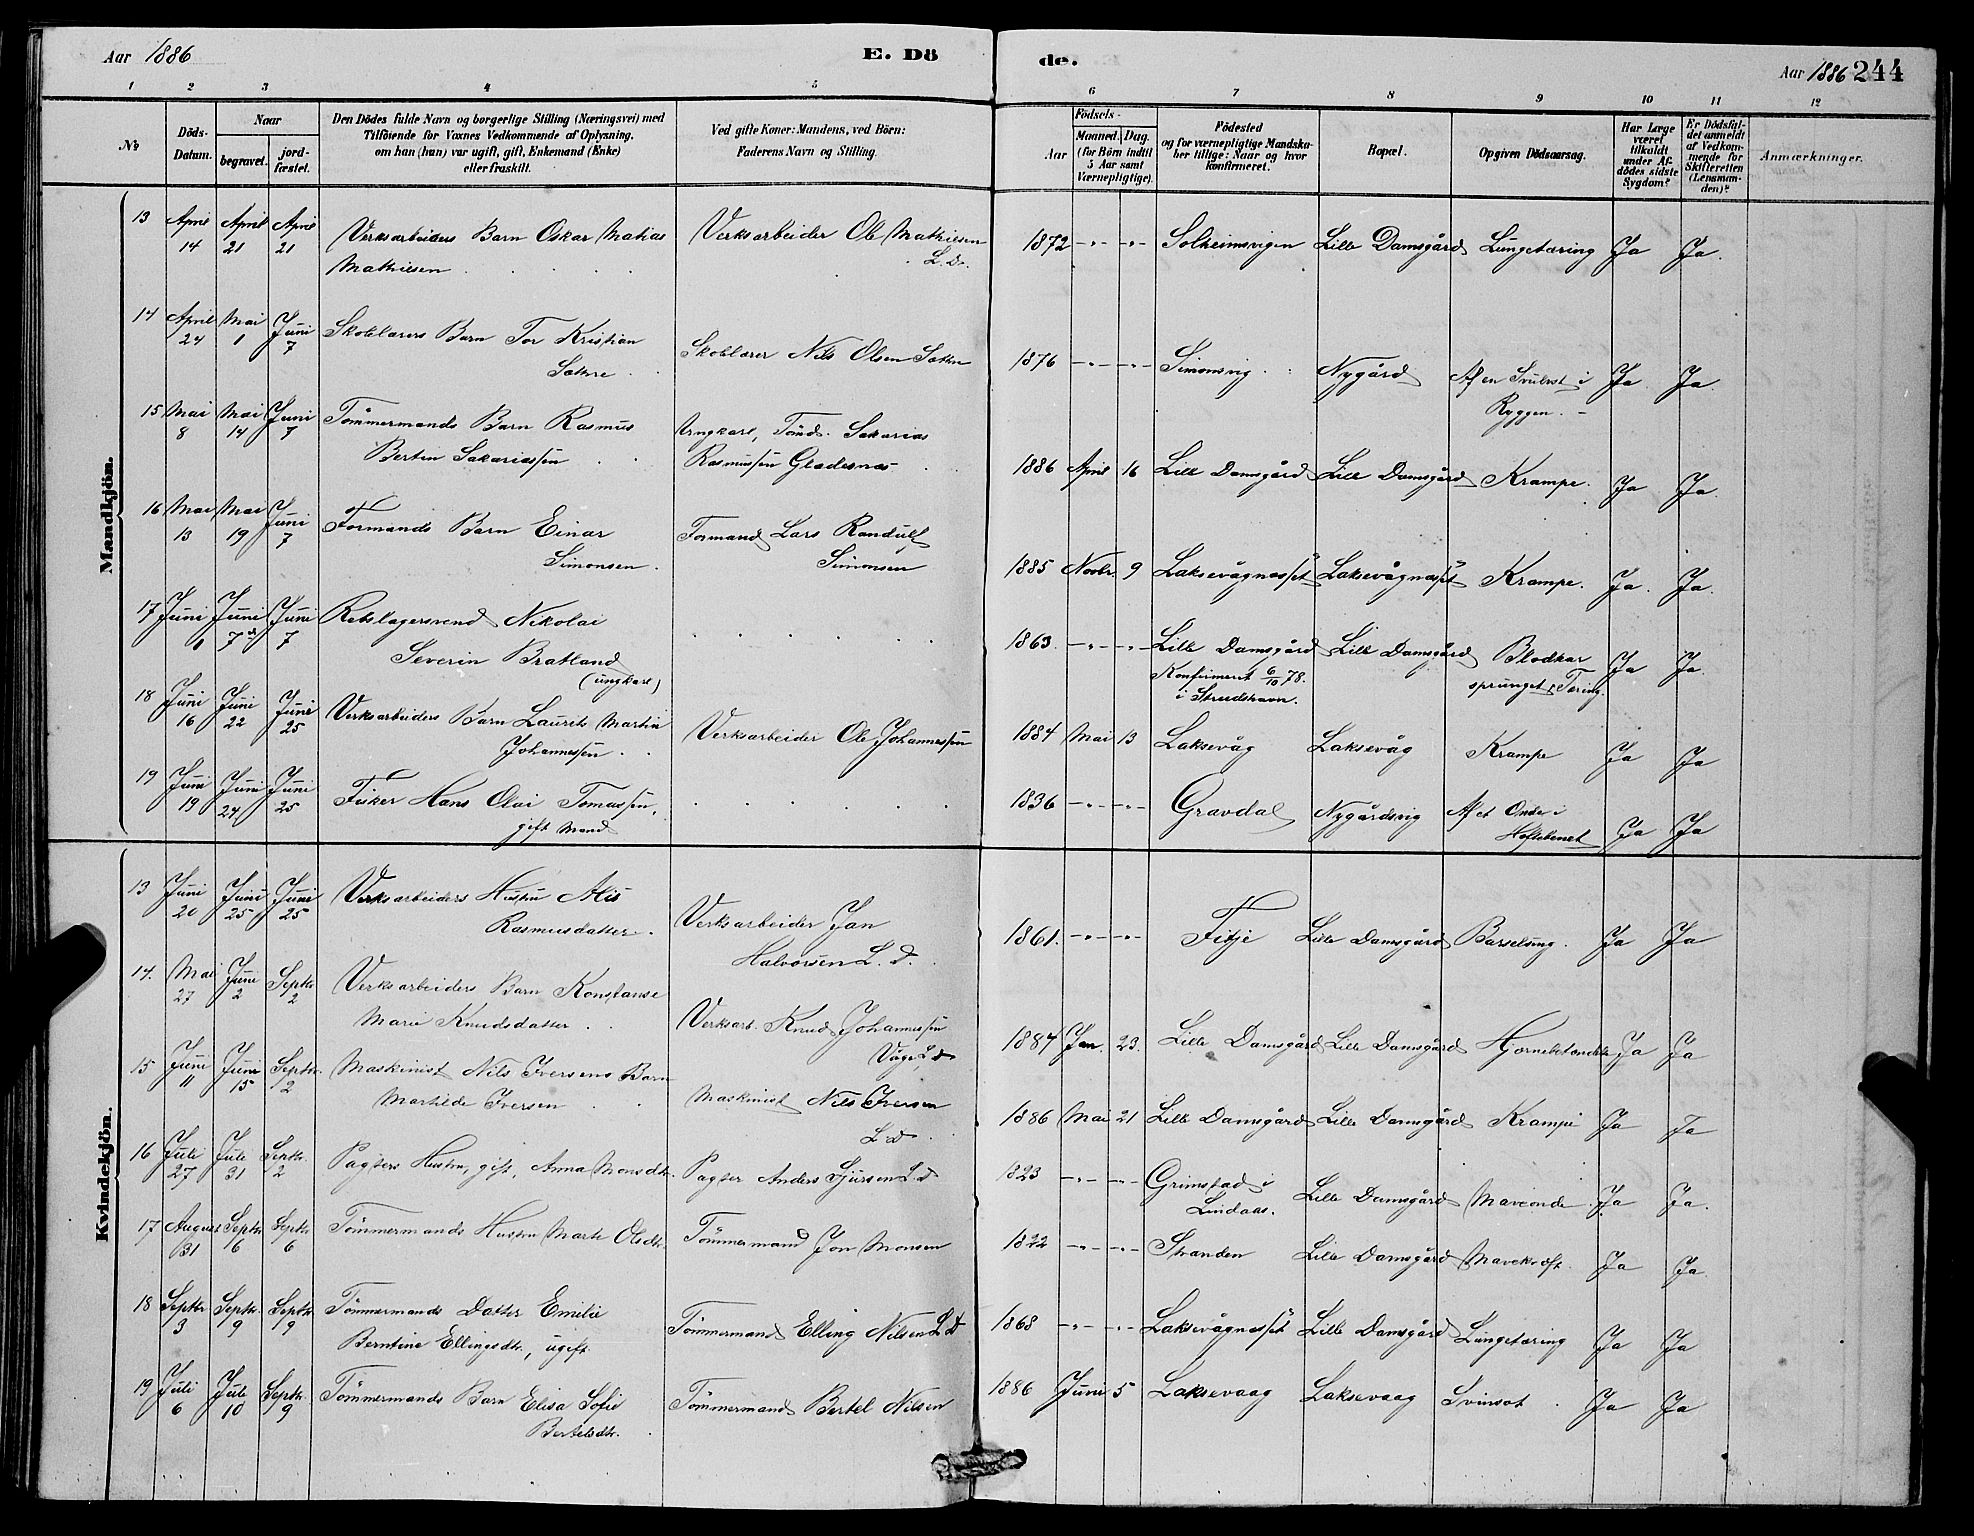 Aar 1886
E. Dö
de.
Aar 1886 244
1 2 3 4 5 6 7 8 9 10 11 12
No
Döds-
Datum.
Naar
begravet.
jord-
fæstet.
Den Dödes fulde Navn og borgerlige Stilling (Næringsvei) med
Tilföiende for Voxnes Vedkommende af Oplysning,
om han (hun) var ugift, gift, Enkemand (Enke)
eller fraskilt.
Ved gifte Koner: Mandens, ved Börn:
Faderens Navn og Stilling.
Födsels-
Aar
Maaned. Dag.
(for Börn indtil
5 Aar samt
Værnepligtige).
Födested
og for værnepligtige Mandska-
ber tillige: Naar og hvor
konfirmeret.
Bopæl.
Opgiven Dödsaarsag.
Har Læge
været
tilkaldt
under Af-
dödes sidste
Sygdom?
Er Dödsfal-
det anmeldt
af Vedkom-
mende for
Skifteretten
(Lensman-
den)?
Anmærkninger.
Mandkjön.
13 April 14 April 21 April 21 Verksarbeiders Barn Oskar Matias Verksarbeider Ole Mathiesen 1872 -"- -"- Solheimsvigen Lille Damsgård Lungetæring Ja Ja.
Mathiesen L. D.
14 April 24 Mai 1 Juni 7 Skolelærers Barn Tor Kristian Skolelærer Nils Olsen Sætre 1876 -"- -"- Simonsvig Nygård Af en Svulst i Ja Ja.
Sætre Ryggen.
15 Mai 8 Mai 14 Juni 7 Tömmermands Barn Rasmus Ungkarl, Tömd. Sakarias 1886 April 16 Lille Damsgård Lille Damsgård Krampe. Ja Ja.
Bertin Sakariassen Rasmussen Gladesnæs
16 Mai 13 Mai 19 Juni 7 Formands Barn Einar Formand Lars Randulf 1885 Novbr. 9 Laksevågnæsset Laksevågnæsset Krampe. Ja. Ja.
Simonsen. Simonsen
17 Juni 1 Juni 7 Juni 7 Rebslagersvend Nikolai 1863. -"- -"- Lille Damsgård Lille Damsgård Blodkar Ja Ja.
Severin Bratland Konfirmeret 6/10 78. sprunget, Tæring.
(ungkarl) i Strudshavn.
18 Juni 16 Juni 22 Juni 25 Verksarbeiders Barn Laurits Martin Verksarbeider Ole Johannessen 1884 Mai 13 Laksevåg Laksevåg Krampe Ja Ja
Johannessen
19 Juni 19 Juni 24 Juni 25 Fisker Hans Olai Tomassen, 1836 -"- -"- Gravdal Nygårdsvig Af et Onde i Ja Ja
gift Mand Hoftebenet
Kvindekjön.
13 Juni 20 Juni 25 Juni 25 Verksarbeiders Hustru Alis Verksarbeider Jan 1861. -"- -"- Fitje Lille Damsgård Barselseng. Ja Ja
Rasmusdatter. Halvorsen L. D.
14. Mai 27 Juni 2 Septbr. 2 Verksarbeiders Barn Konstanse Verksarb. Knud Johannessen 1884 Jan. 23. Lille Damsgård Lille Damsgård Hjernebetændelse Ja Ja
Marie Knudsdatter Våge, L. D
15 Juni 11 Juni 15 Septbr. 2 Maskinist Nils Iversens Barn Maskinist Nils Iversen 1886 Mai 21 Lille Damsgård Lille Damsgård Krampe Ja Ja
Martilde Iversen L. D.
16 Juli 27 Juli 31 Septbr. 2 Pagters Hustru, gift, Anna Monsdtr. Pagter Anders Sjursen L. D 1823 -"- -"- Grimstad i Lille Damsgård Maveonde. Ja Ja.
Lindaas.
17 August 31 Septbr. 6 Septbr. 6 Tömmermands Hustru Marte Olsdtr. Tömmermand Jon Monsen 1822 -"- -"- Stranden Lille Damsgård Mavekræft. Ja Ja
18 Septbr 3 Septbr. 9 Septbr. 9 Tömmermands Datter Emilie Tömmermand Elling Nilsen L D 1868 -"- -"- Laksevågnæsset Lille Damsgård Lungetæring Ja Ja
Berntine Ellingsdtr., ugift
19 Juli 6 Juli 10 Septbr. 9 Tömmermands Barn Elisa Sofie Tömmermand Bertel Nilsen 1886 Juni 5 Laksevaag Laksevaag Svinsot Ja Ja
Bertelsdtr.